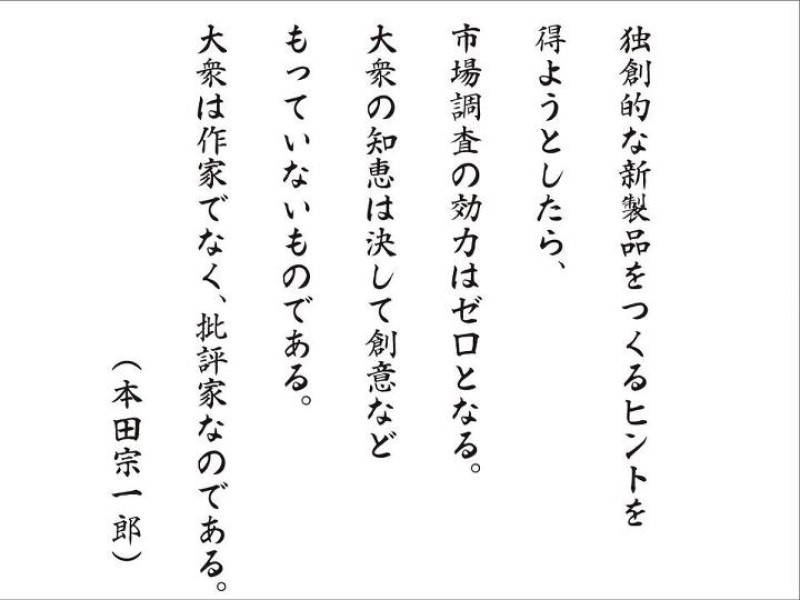 独創的な新製品をつくるヒントを
得ようとしたら、
市場調査の効力はゼロとなる。
大衆の知恵は決して創意など
もっていないものである。
大衆は作家でなく、批評家なのである。
（本田宗一郎）